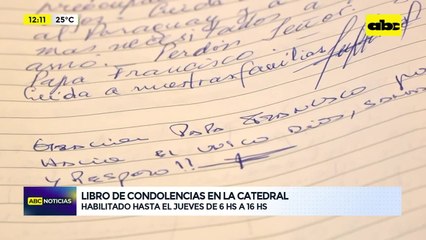 12:11 25°C
abc
al Paraguay y a
más necesitados
amo. Perdón Señor
Papa Francisco.
Cuida a nuestras familias
Gracias PAPA FRANCISCO por
HACIA EL UNICO DIOS,
Y RESPETO!!
ABC NOTICIAS
LIBRO DE CONDOLENCIAS EN LA CATEDRAL
HABILITADO HASTA EL JUEVES DE 6 HS A 16 HS